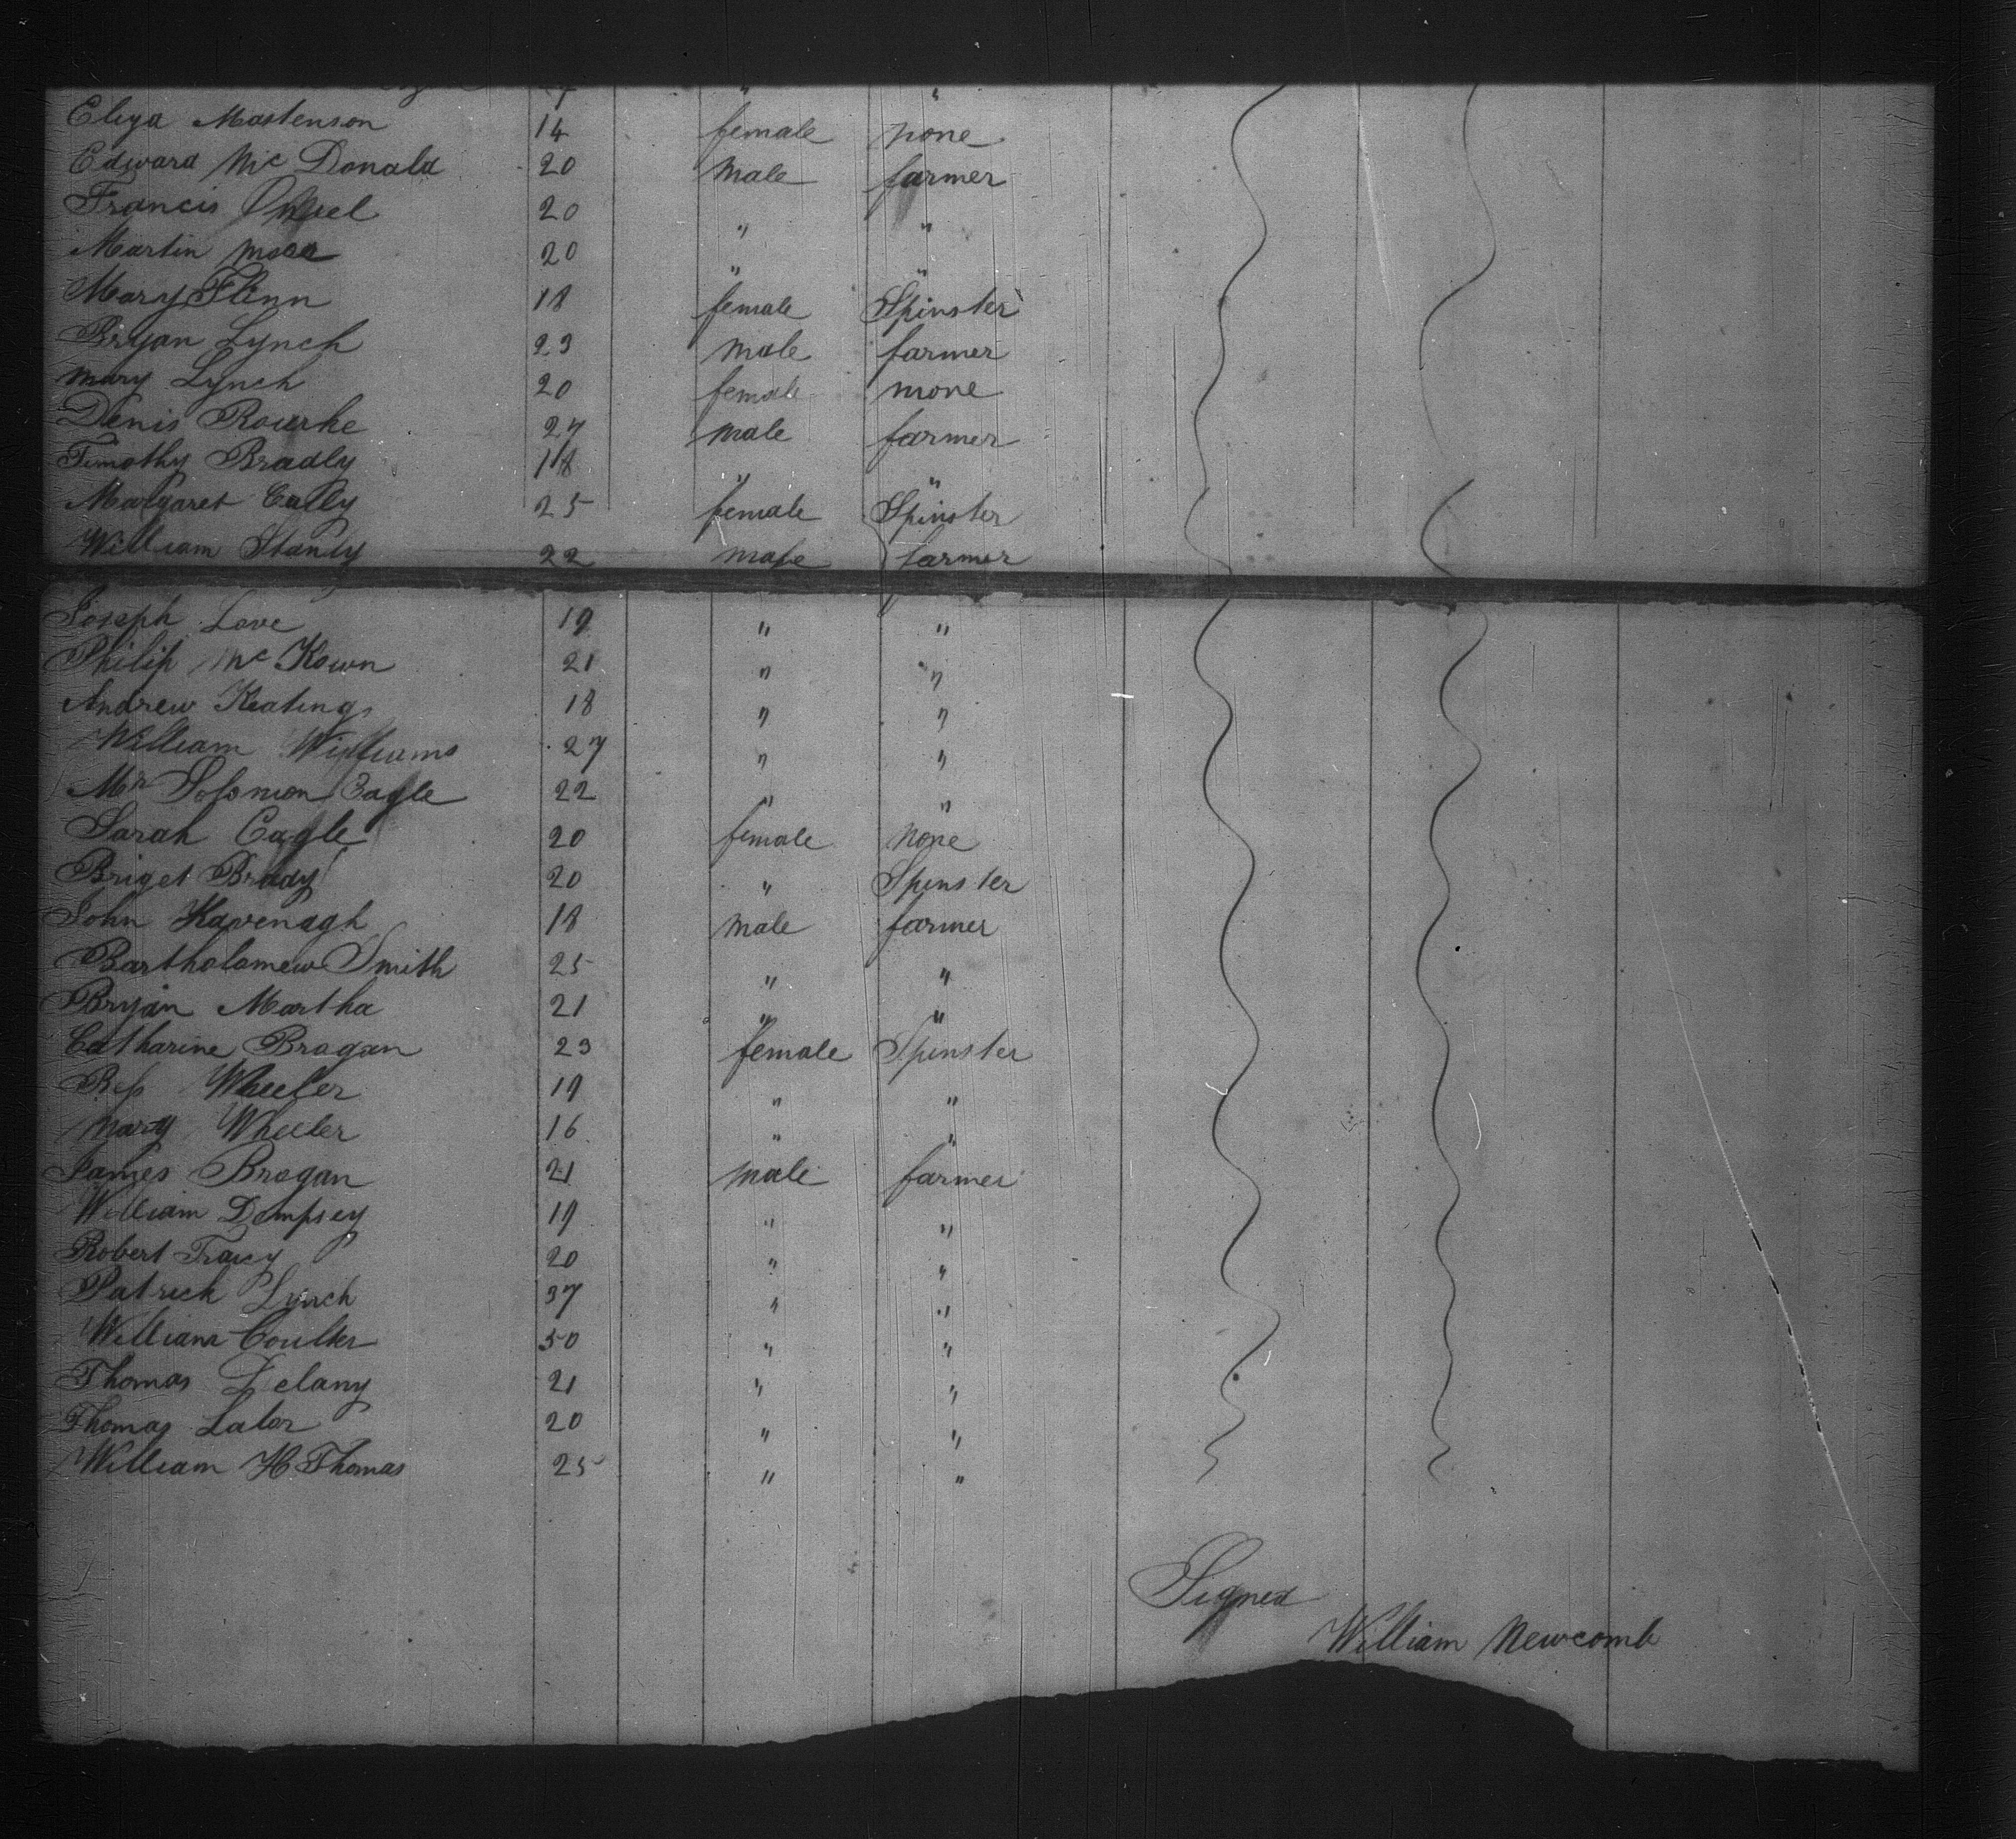 Eliza Mastenson 14 female none
Edward McDonald 20 male farmer
Francis 20 " "
Martin 20 " "
Mary Flinn 18 female Spinster
Bryan Lynch 23 male farmer
Mary Lynch 20 female none
Denis Rourke 27 male farmer
Timothy Bradly 18 " "
Margaret Cally 25 female Spinster
William Stanly 22 male farmer
Joseph Love 19 " "
Philip McKown 21 " "
Andrew Keatings 18 " "
William Williams 27 " "
Mr Solomon Eagle 22 " "
Sarah Eagle 20 female none
Briget Brady 20 " Spinster
John Kavenagh 18 male farmer
Bartholomew Smith 25 " "
Bryan Martha 21 " "
Catharine Brogan 23 female Spinster
Bess Wheeler 19 " "
Mary Wheeler 16 " "
James Brogan 21 male farmer
William Dempsey 19 " "
Robert Tracy 20 " "
Patrick Lynch 37 " "
William Coulter 50 " "
Thomas Delany 21 " "
Thomas Lalor 20 " "
William H Thomas 25 " "
Signed
William Newcomb